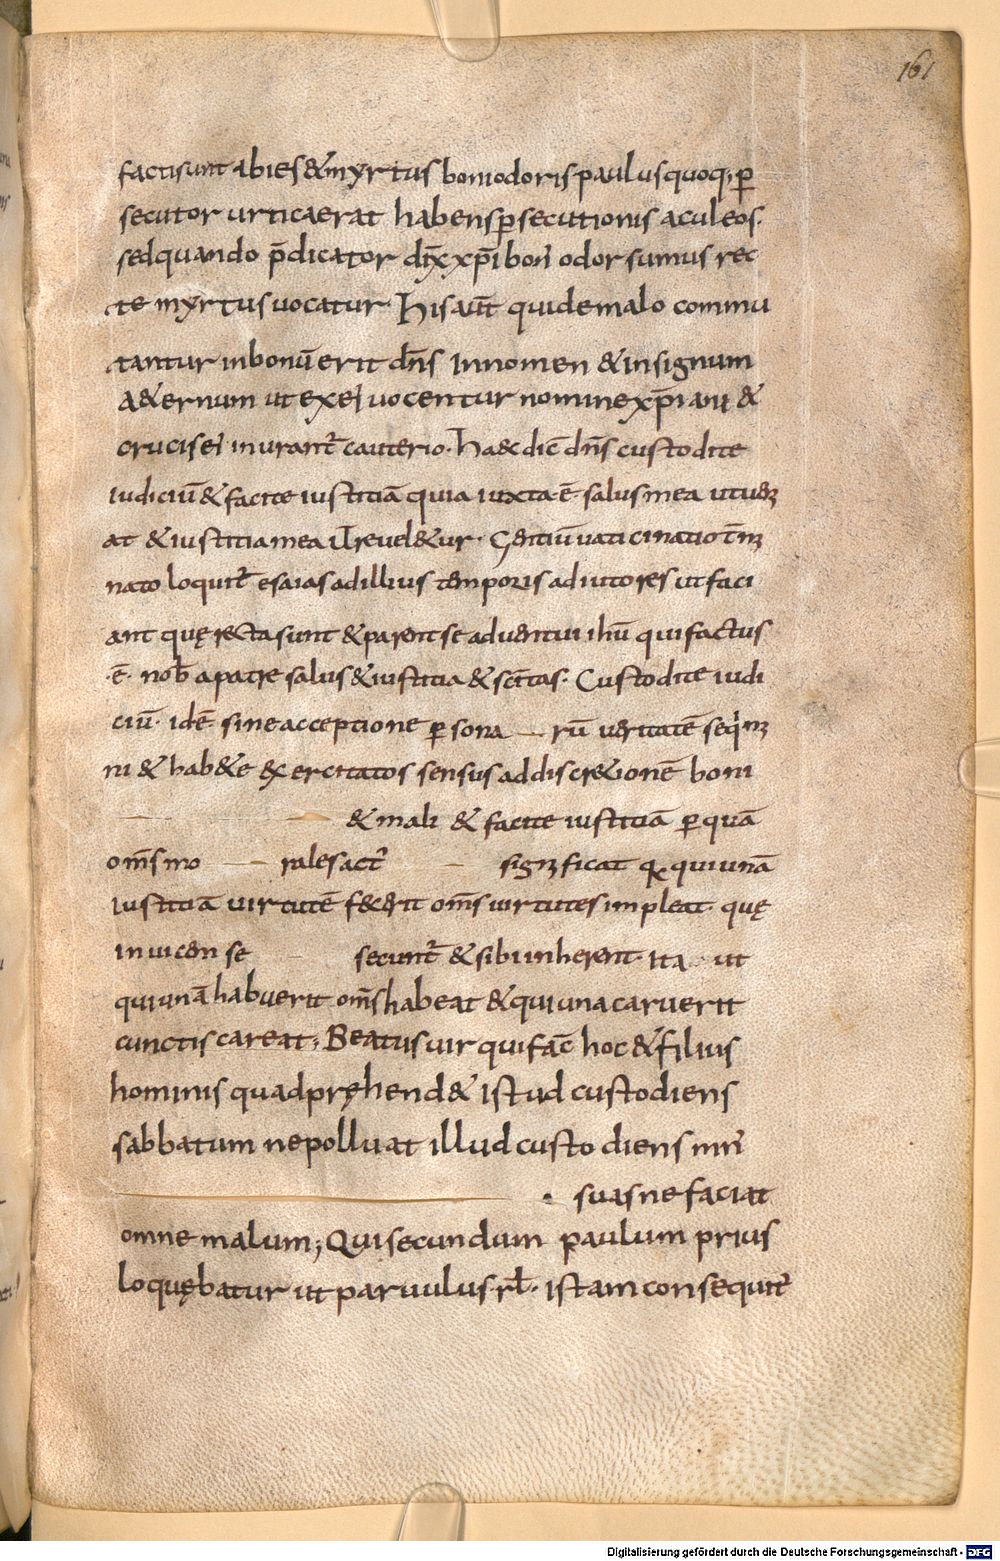 161
facti sunt abies & myrtus boni odoris paulus quoq; p̱
secutor urtica erat habens p̱secutionis aculeos.
sed quando p̄dicator dix̄ xp̄i bon' odor sumus rec
te myrtus uocatur. His aut̄ qui de malo commu
tantur in bonū erit dn̄s In nomen & in signum
A&ernum ut ex ei uocentur nomine xp̄iani &
crucis ei inurant̄ cauterio. haec dic̄ dn̄s custodite
iudiciū & facite iustitiā quia iuxta ē salus mea ut ueni
at & iustitia mea ut reuel&ur. Gentiū uaticinatio
nato loquit̄ esaias ad illius temporis adiutores ut faci
ant quę recta sunt & parent se aduentui ih̄u qui factus
.ē. nob̄ a patre salus & iustitia & sc̄itas. Custodite iudi
ciū. idē sine acceptione p̱sona rū ueritatē seqim
ni & hab&e exercitatos sensus ad discr&ionē boni
& mali & facite iustitiā p̱ quā
om̄s mo rales act' significat q̱ qui unā
iustitiā uirtutē fecerit om̄s uirtutes impleat. quę
inuicem se secunt̄ & sibi inherent. Ita ut
qui unā habuerit om̄s habeat & qui una caruerit
cunctis careat; Beatus uir qui fac̄ hoc & filius
hominis qua dpręhend& istud custodiens
sabbatum ne polluat illud custodiens man'
suas ne faciat
omne malum; Qui secundum paulum prius
loquębatur ut paruulus. rl̄. istam consequit̄
Digitalisierung gefördert durch die Deutsche Forschungsgemeinschaft - DFG